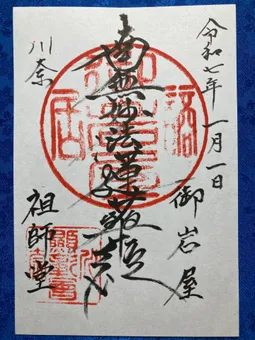 令和七年一月一日
御岩屋
南無妙法蓮華経
川奈
祖師堂